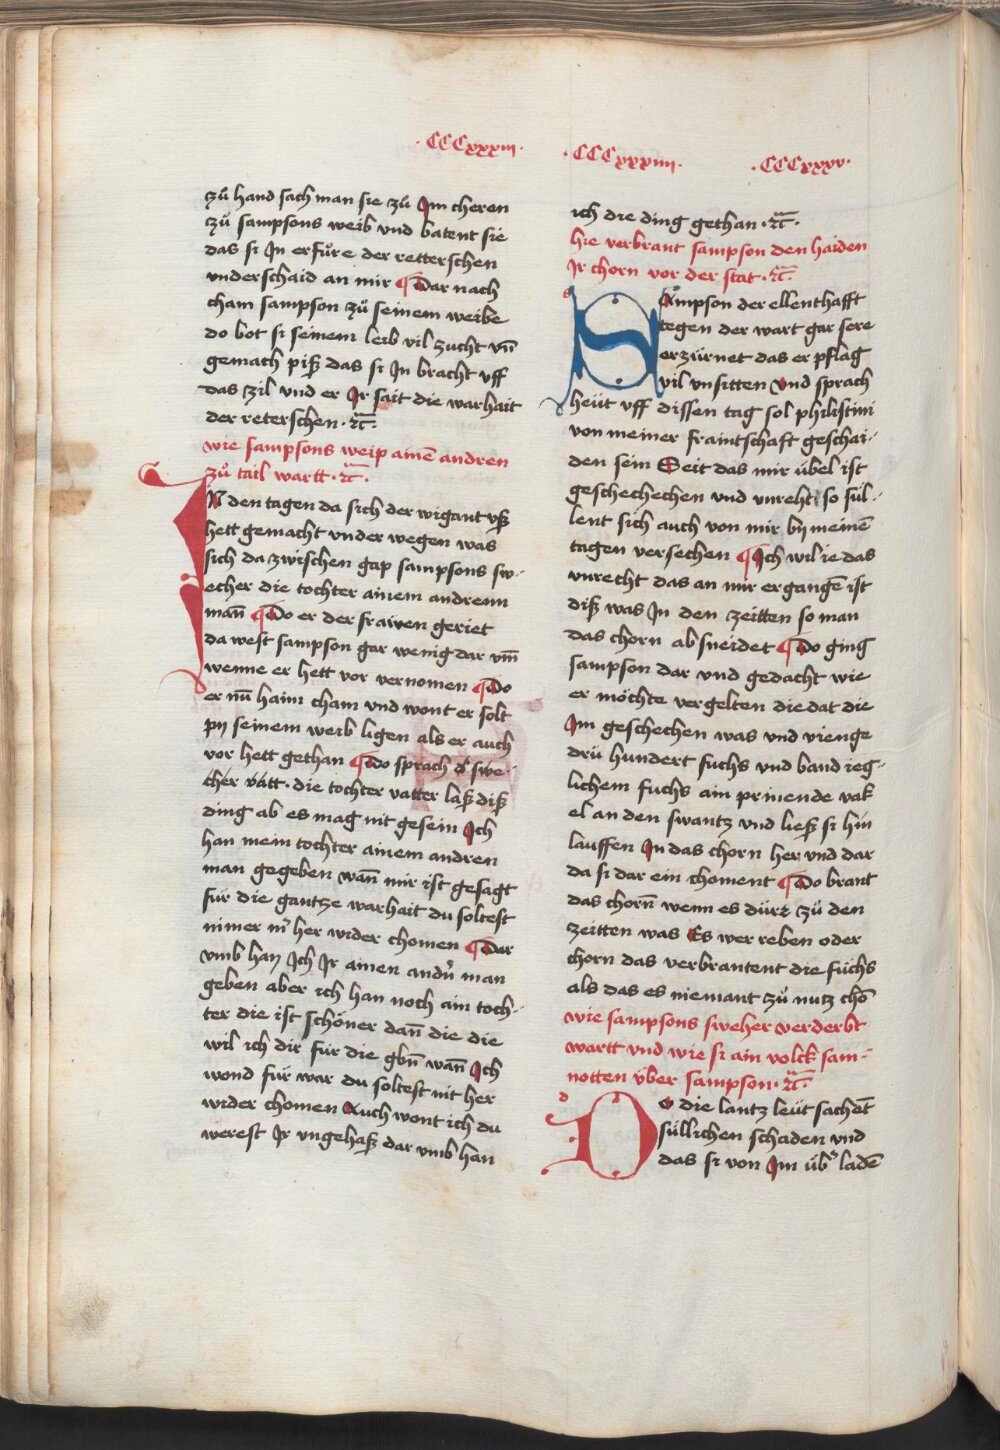 ·CCCxxxiii·
·CCCxxxiiii·
·CCCxxxv·
zů hand sach man sie zů Jm cheren
zů sampsons weib vnd batent sie
das si Jn erfůre der retterschen
vnderschaid an mir ¶ Dar nach
cham sampson zů seinem weibe
do bot si seinem leib vil zucht vn̄
gemach piß das si Jn bracht vff
das zil vnd er Jr sait die warhait
der reterschen · ⁊c̄ ·
wie sampsons weip ainē andren
zů tail wartt · ⁊c̄ ·
JN den tagen da sich der wigant vß
hett gemacht vnder wegen was
sich da zwischen gap sampsons sw-
echer die tochter ainem andrenn
man̄ ¶ Do er der frawen geriet
da west sampson gar wenig dar vm̄
wenne er hett vor vernomen ¶ Do
er nū haim cham vnd wont er solt
pij seinem weib ligen als er auch
vor hett gethan ¶ Do sprach dˀ swe-
cher vatt · die tochter vatter laß diß
ding ab es mag nit gesein Jch
han mein tochter ainem andren
man gegeben wan̄ mir ist gesagt
für die gantze warhait du soltest
nimer mˀ her wider chomen ¶ Dar
vmb han Jch Jr ainen andˀn man
geben aber ich han noch ain toch-
ter die ist schöner dan̄ die die
wil ich dir für die gbn̄ wan̄ Jch
wond für war du soltest nit her
wider chomen Auch wont ich du
werest Jr vngehaß dar vmb han
ich die ding gethan · ⁊c̄ ·
hie verbrant sampson den haiden
Jr chorn vor der stat · ⁊c̄ ·
SAmpson der ellenthafft
tegen der wart gar sere
erzürnet das er pflag
vil vnsitten Vnd sprach
heüt vff dissen tag sol philistini
von meiner fraintschaft geschai-
den sein Seit das mir übel ist
geschechechen vnd vnreht so sül-
lent sich auch von mir bij meinē
tagen versechen ¶ Jch wil ie das
vnrecht das an mir ergangē ist
diß was Jn den zeitten so man
das chorn absneidet ¶ Do ging
sampson dar vnd gedacht wie
er möchte vergelten die dat die
Jm geschechen was vnd vienge
drü hundert fuchs vnd band ieg-
lichem fuchs ain prinende vak
el an den swantz vnd ließ si hin
lauffen Jn das chorn her vnd dar
da si dar ein choment ¶ Do brant
das chorn̄ wenn es dürr zů den
zeitten was Es wer reben oder
chorn das verbrantent die füchs
als das es niemant zů nutz chō
wie sampsons sweher verderbt
wartt vnd wie si ain volck sam-
notten über sampson · ⁊c̄ ·
DO die lantz leüt sachēt
süllichen schaden vnd
das si von Jm übˀ ladē